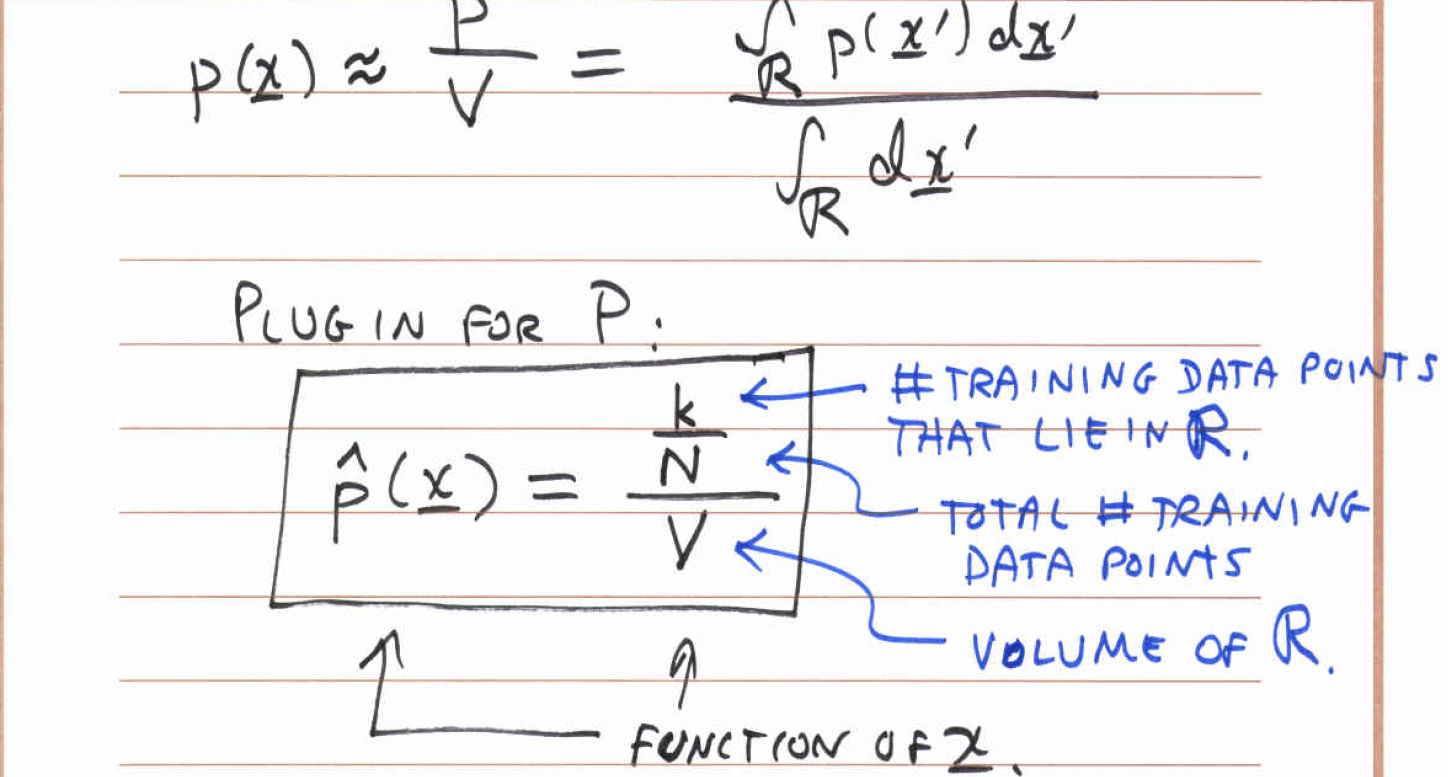 p(x) ≈ P/V = ∫_R p(x') dx' / ∫_R dx'
PLUG IN FOR P:
p̂(x) = (k/N)/V
# TRAINING DATA POINTS
THAT LIE IN R.
TOTAL # TRAINING
DATA POINTS
VOLUME OF R.
FUNCTION OF x.